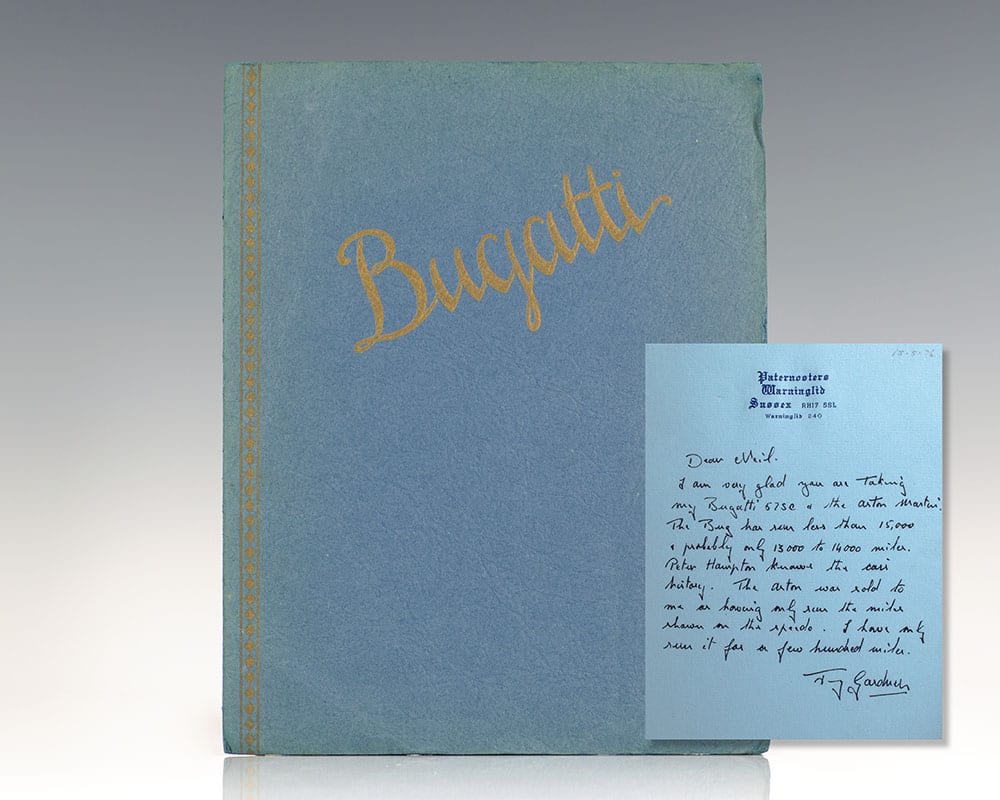 Bugatti
15-5-76
Paternosters
Warninglid
Sussex RH17 5SL
Warninglid 240
Dear Neil.
I am very glad you are taking
my Bugatti 57SC & the Aston Martin.
The Bug has run less than 15,000
& probably only 13000 to 14000 miles.
Peter Hampton knows the cars
history. The Aston was sold to
me as having only run the miles
shown on the speedo. I have only
run it for a few hundred miles.
Gardner